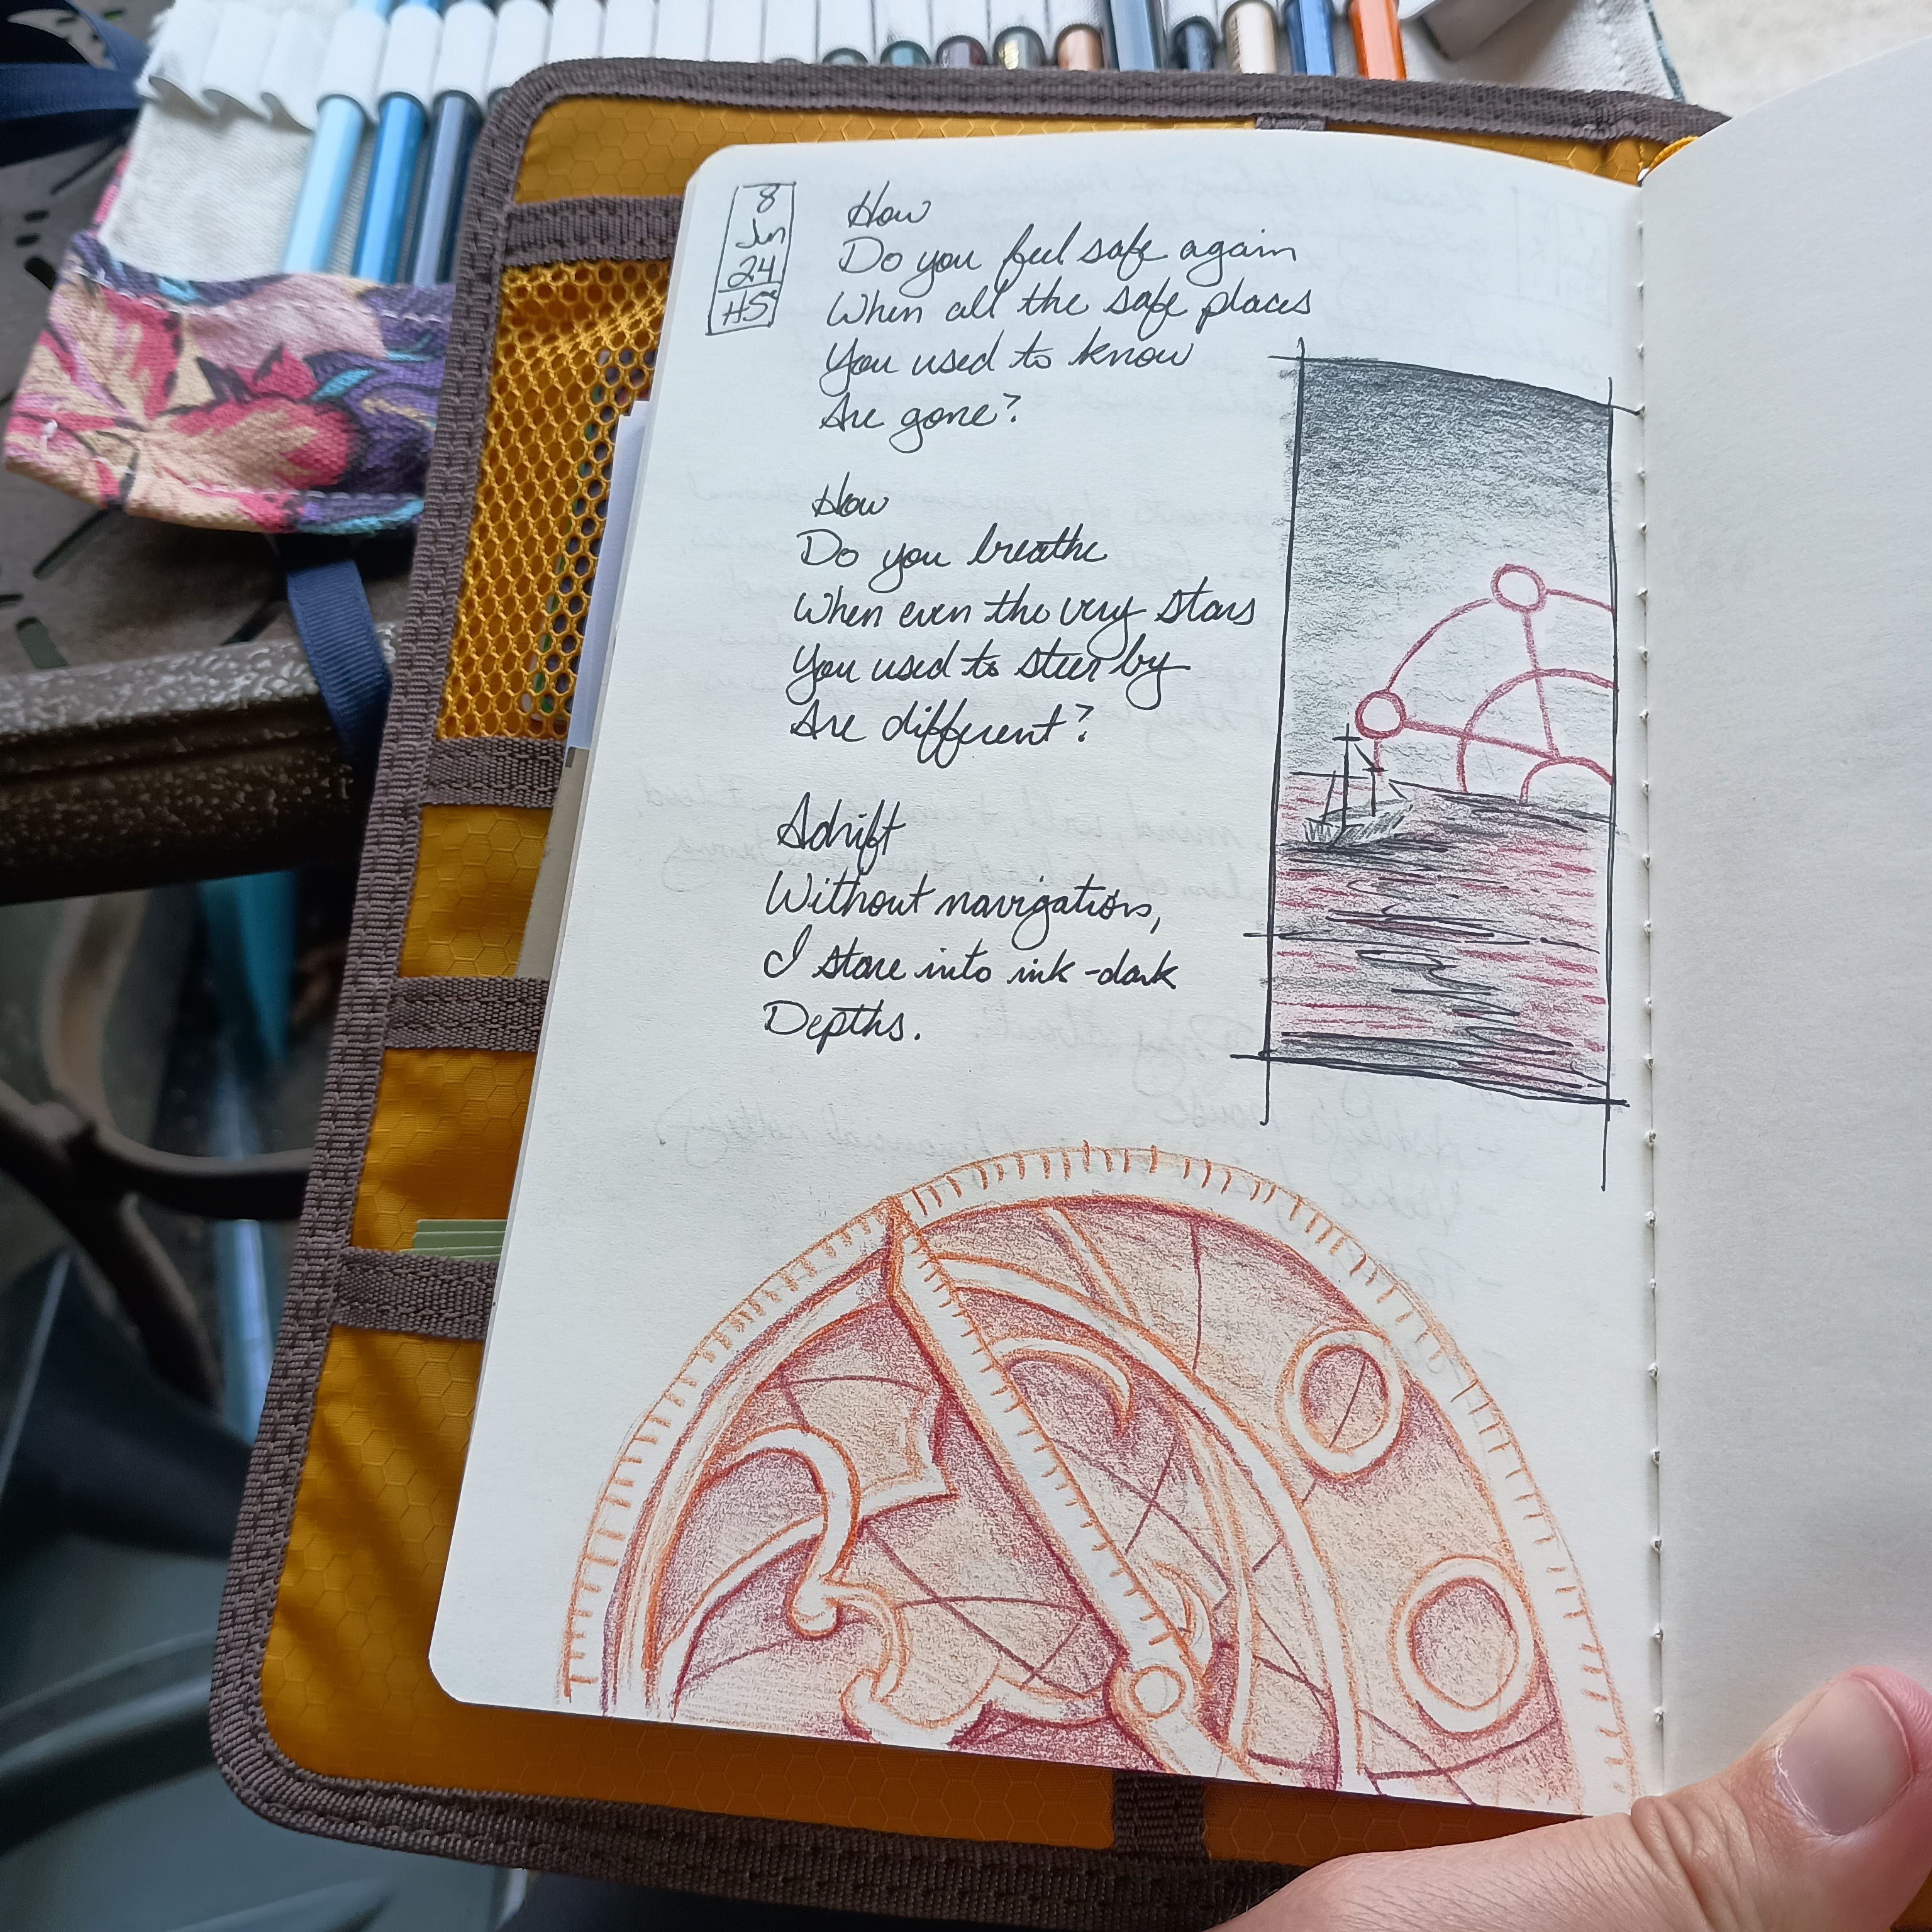 8
Jun
24
HS
How
Do you feel safe again
When all the safe places
You used to know
Are gone?
How
Do you breathe
When even the very stars
You used to steer by
Are different?
Adrift
Without navigation,
I stare into ink-dark
Depths.